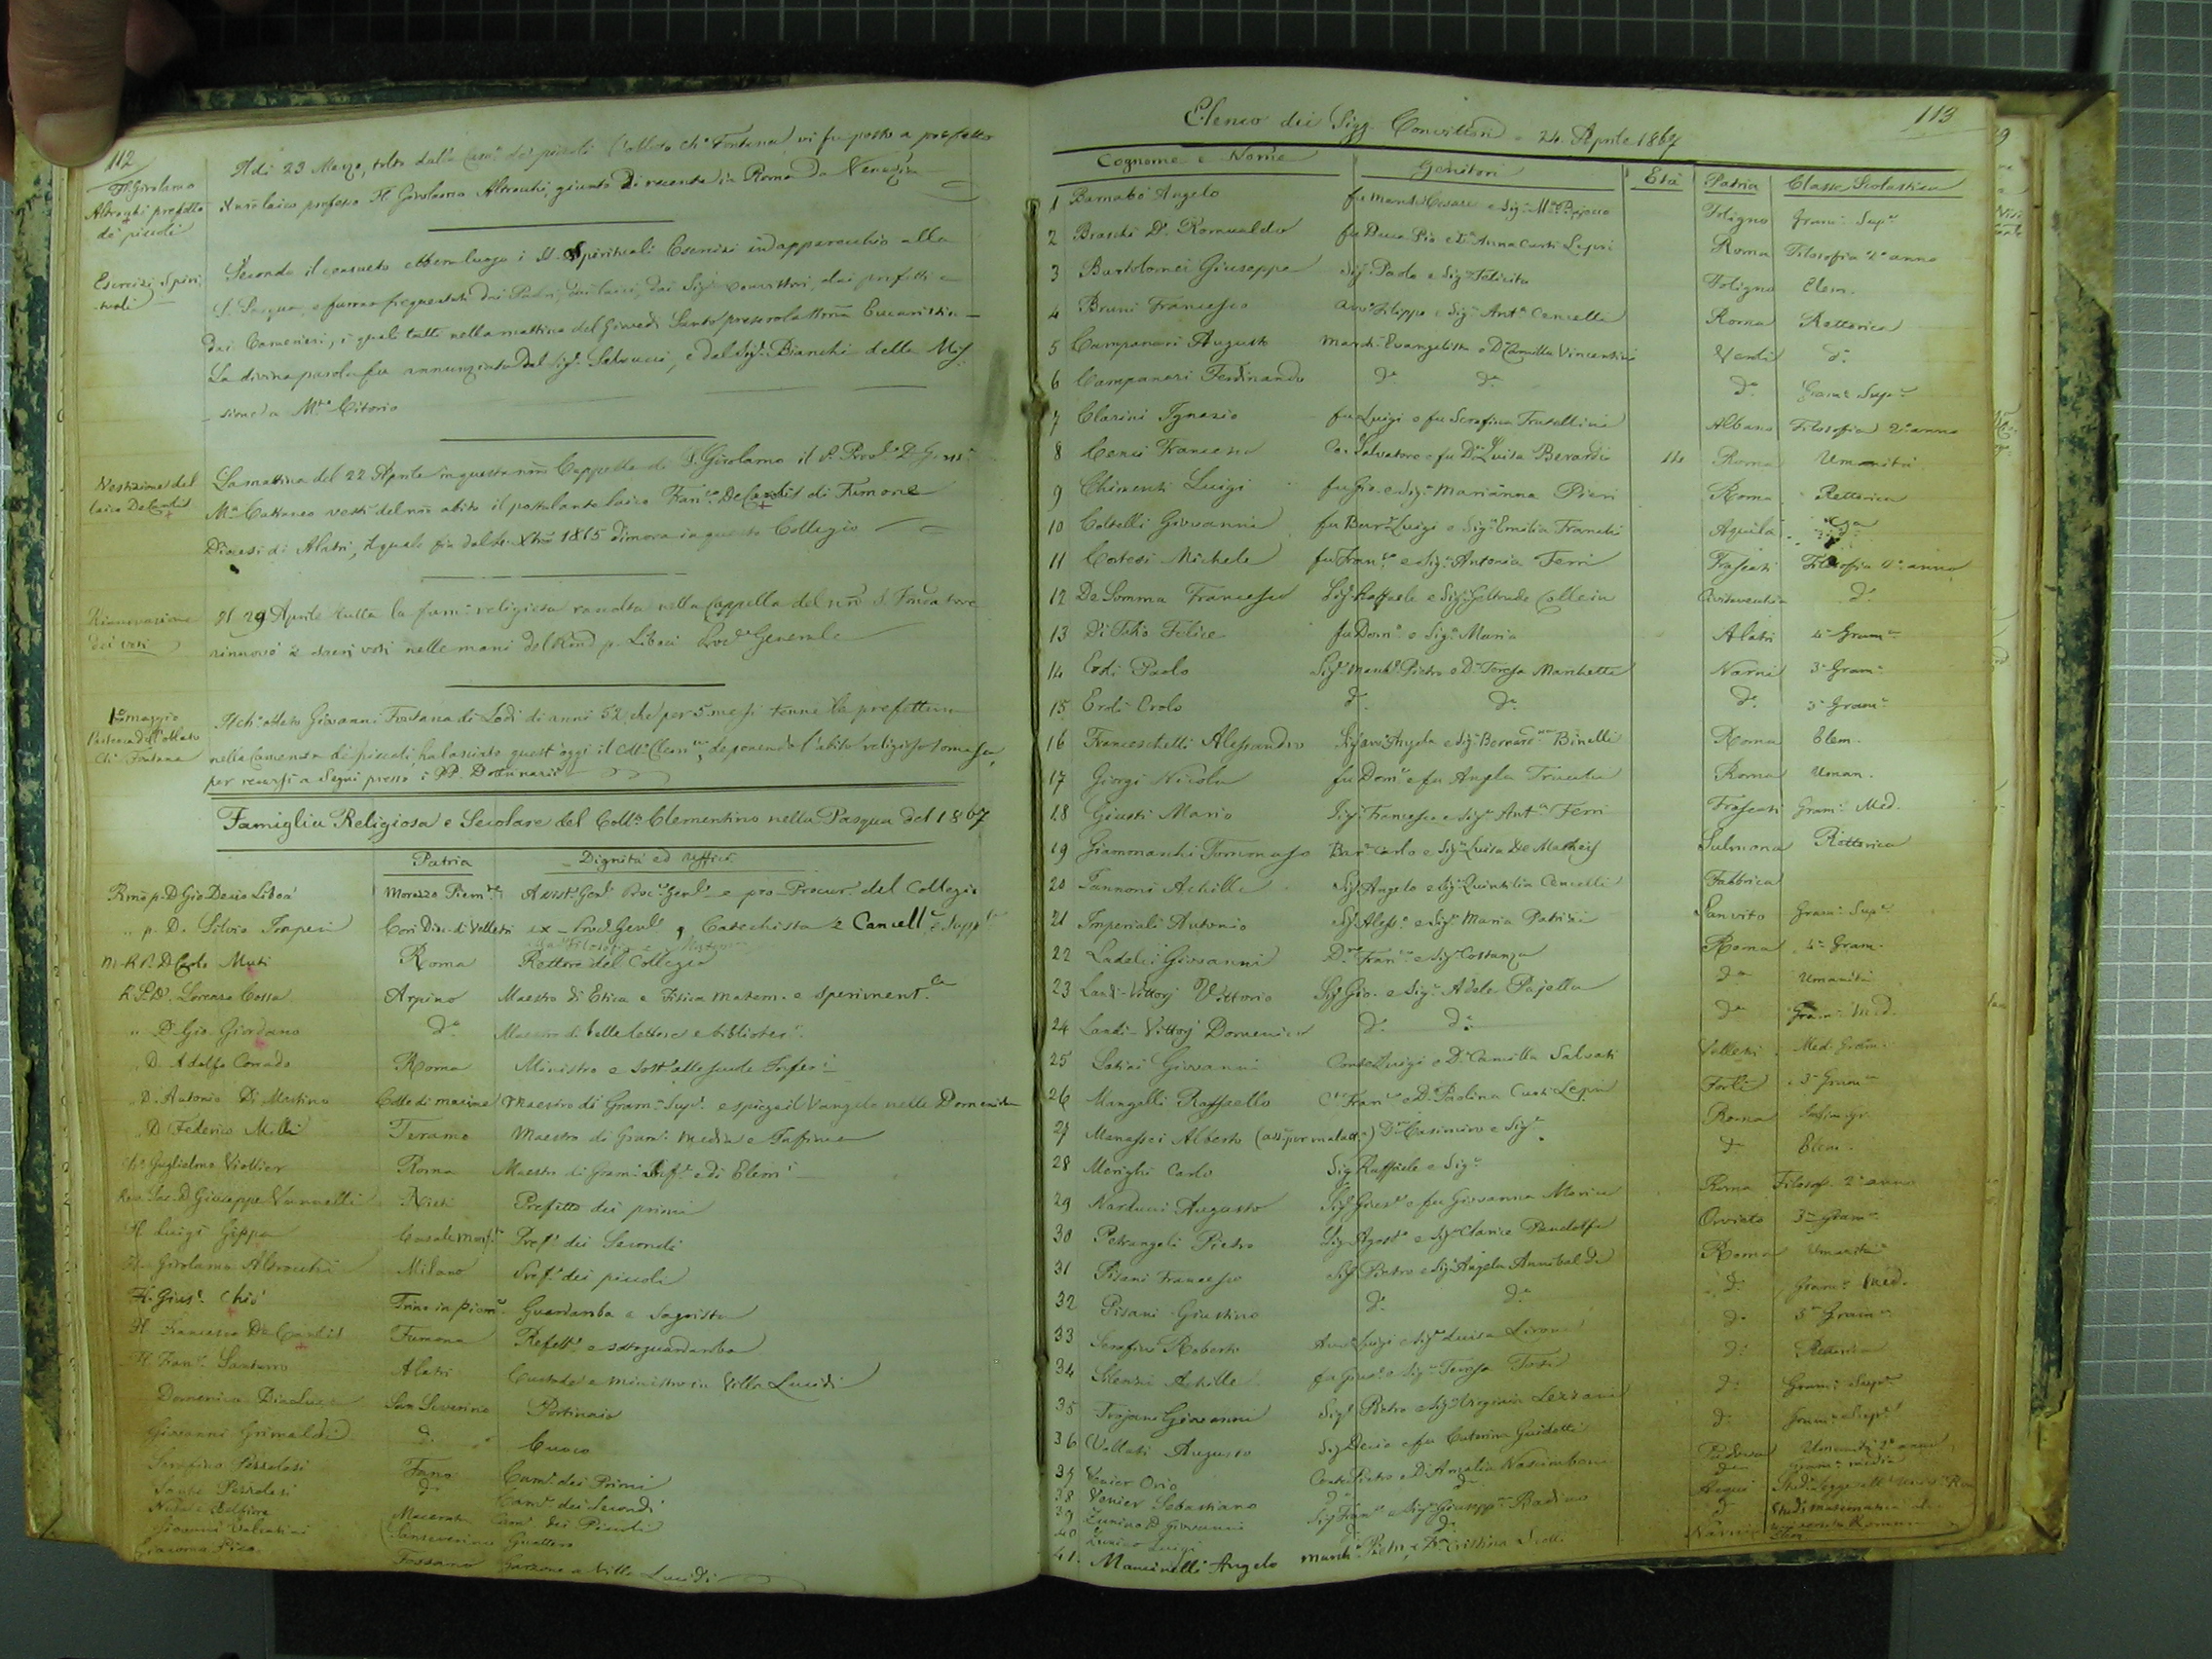 112
Fr. Girolamo
Altrocchi prefetto
de' piccoli
Adì 23 Marzo, tolto dalla Cam.ª dei piccoli l'oblato Ch.º Fontana, vi fu posto a prefetto
laico professo Fr. Girolamo Altrocchi, giunto di recente in Roma da Venezia
Esercizi Spiri
tuali
Secondo il consueto ebber luogo i SS. Spirituali Esercizi in apparecchio alla
S. Pasqua, e furono frequentati dai Padri, dai laici, dai Sig.i convittori, dai prefetti e
dai Camerieri, i quali tutti nella mattina del Giovedì Santo presero la SSma Eucaristia
La divina parola fu annunziata dal Sig.r Salvucci, e dal Sig.r Bianchi della Mis
sione a M.te Citorio
Vestizione del
laico De Carolis
La mattina del 22 Aprile in questa nra Cappella di S. Girolamo il P. Prov.le D.
M.ª Cattaneo vestì del nro abito il postulante laico Fran.co De Carolis di Fumone
Diocesi di Alatri, il quale fin dal 1865 dimora in questo Collegio
Rinnovazione
dei voti
Il 29 Aprile tutta la fam.ª religiosa raccolta nella Cappella del nro S. Fondatore
rinnovò i sacri voti nelle mani del Rmo p. Libois Proc.re Generale
1º maggio
Partenza dell'oblato
Ch.º Fontana
Il ch.º oblato Giovanni Fontana di Lodi di anni 52, che per 5 mesi tenne la prefettura
nella Camerata dei piccoli, ha lasciato quest'oggi il Clem.no, deponendo l'abito religioso somasco,
per recarsi a Segni presso i PP. Dottrinarii
Famiglia Religiosa e Secolare del Coll.º Clementino nella Pasqua del 1867
Patria Dignità ed Uffici
Rmo p. D. Gio Decio Libois Morozzo Piem.te Assist. Gen.le Proc.re Gen.le e pro-Procur. del Collegio
" p. D. Silvio Imperi Cori Dioc. di Velletri ex-Prov. Gen.le, Catechista e Cancell.e
M. R. P. D. Carlo Muti Roma Rettore del Collegio
R. P. D. Lorenzo Cossa Arpino Maestro di Etica e Fisica matem. e speriment.le
" D. Gio. Giordano d.º Maestro di belle lettere e bibliotec.
" D. Adolfo Conrado Roma Ministro e Sott'
" D. Antonio Di Martino Colle di macine Maestro di Gram. Sup.re e spiega il Vangelo nelle Domeniche
" D. Federico Milli Teramo Maestro di Gram. media e Infima
Guglielmo Viollier Roma Maestro di Gram. e di Elem.
D. Giuseppe Vannelli Rieti Prefetto dei primi
Fr. Luigi Gippa Casale Monf. Pref. dei Secondi
Fr. Girolamo Altrocchi Milano Pref. dei piccoli
Fr. Gius. Chiò Trino in piem. Guardaroba e Sagrista
Fr. Francesco De Carolis Fumone Refett. e sottoguardaroba
Fr. Fran. Santurro Alatri Custode e ministro in Villa Lucidi
Domenico San Severino Portinaio
Giovanni Grimaldi d.º Cuoco
Serafino Pierolesi Fano Cam. dei Primi
Sante Pierolesi d.º Cam. dei Secondi
Belfiore Macerata Cam. dei Piccoli
Giovanni Valentini Sanseverino Guattero
Giacomo Fossano Garzone a Villa Lucidi
113
Elenco dei Sigg. Convittori 24. Aprile 1867
Cognome e Nome Genitori Età Patria Classe Scolastica
1 Barnabò Angelo fu March. Cesare e Sig.ª M.ª Foligno Gram. Sup.re
2 Braschi D. Romualdo fu Duca Pio e D.ª Anna Curti Lepri Roma Filosofia 2º anno
3 Bartolomei Giuseppe Sig. Paolo e Sig.ª Felicita Foligno Elem.
4 Bruni Francesco Avv. Filippo e Sig.ª Ant.ª Cencelli Roma Rettorica
5 Campanari Augusto March. Evangelista e D.ª Camilla Vincentini Veroli d.º
6 Campanari Ferdinando d.º d.º d.º Gram. Sup.re
7 Clarini Ignazio fu Luigi e fu Serafina Fratellini Albano Filosofia 2º anno
8 Cenci Francesco Cav. Salvatore e fu D.ª Luisa Berardi 14 Roma Umanità
9 Chimenti Luigi fu Gio. e Sig.ª Marianna Pieri Roma Rettorica
10 Coltelli Giovanni fu Bar. Luigi e Sig.ª Emilia Franchi Aquila d.º
11 Cortesi Michele fu Fran. e Sig.ª Antonia Ferri Frascati Filosofia 2º anno
12 De Somma Francesco Sig. Raffaele e Sig.ª Geltrude Collein Civitavecchia d.º
13 Di Fabio Felice fu Dom. e Sig.ª Maria Alatri 4ª Gram.
14 Eroli Paolo Sig. March. Pietro e D.ª Teresa Marchetti Narni 3ª Gram.
15 Eroli Erolo d.º d.º d.º 3ª Gram.
16 Franceschetti Alessandro Sig. Angelo e Sig.ª Bernard.na Binelli Roma Elem.
17 Giorgi Nicola fu Dom. e fu Angela Roma Uman.
18 Giusti Mario Sig. Francesco e Sig.ª Ant.ª Ferri Frascati Gram. Med.
19 Giammarchi Tommaso Bar. Carlo e Sig.ª Luisa De Matheis Sulmona Rettorica
20 Jannoni Achille Sig. Angelo e Sig.ª Quintilia Cencelli Fabbrica
21 Imperiali Antonio Sig. Aless. e Sig.ª Maria Patrizi Sanvito Gram. Sup.re
22 Ladelci Giovanni D.re Fran. e Sig.ª Costanza Roma 4ª Gram.
23 Landi-Vittorj Vittorio Sig. Gio. e Sig.ª Adele Pajella d.º Umanità
24 Landi-Vittorj Domenico d.º d.º d.º Gram. Med.
25 Latini Giovanni Conte Luigi e D.ª Camilla Salvati Velletri Med. Gram.
26 Mangelli Raffaello C.te Fran. e D.ª Paolina Curti Lepri Forlì 3ª Gram.
27 Manassei Alberto (ass. per malatt.) Casimiro e Sig.ª Roma Infim. gr.
28 Merighi Carlo Sig. Raffaele e Sig.ª d.º Elem.
29 Narducci Augusto Sig. e fu Giovanna Roma Filosof. 2º anno
30 Petrangeli Pietro Sig. Agost. e Sig.ª Clarice Pandolfi Orvieto 3ª Gram.
31 Pisani Francesco Sig. Pietro e Sig.ª Angela Annibaldi Roma Umanità
32 Pisani Giustino d.º d.º d.º Gram. Med.
33 Serafini Roberto Avv. Luigi e Sig.ª Luisa d.º 3ª Gram.
34 Achille fu Gius. e Sig.ª Teresa Tosi d.º Rettorica
35 Trojani Giovanni Sig. Pietro e Sig.ª Virginia Lezzani d.º Gram. Sup.re
36 Vallati Augusto Sig. Decio e fu Caterina Guidotti d.º Gram. Sup.re
37 Venier Orio Conte Pietro e D.ª Amalia Nascimbeni Padova Umanità 2º anno
38 Venier Sebastiano d.º d.º d.º Gram. media
39 Zunino D. Giovanni Sig. Fran. e Sig.ª Giusepp. Badino Acqui
40 Zunino Luigi d.º d.º d.º Studi matematica
41. Mancinelli Angelo March. Pietro e D.ª Cristina Scotti Narni Elem.